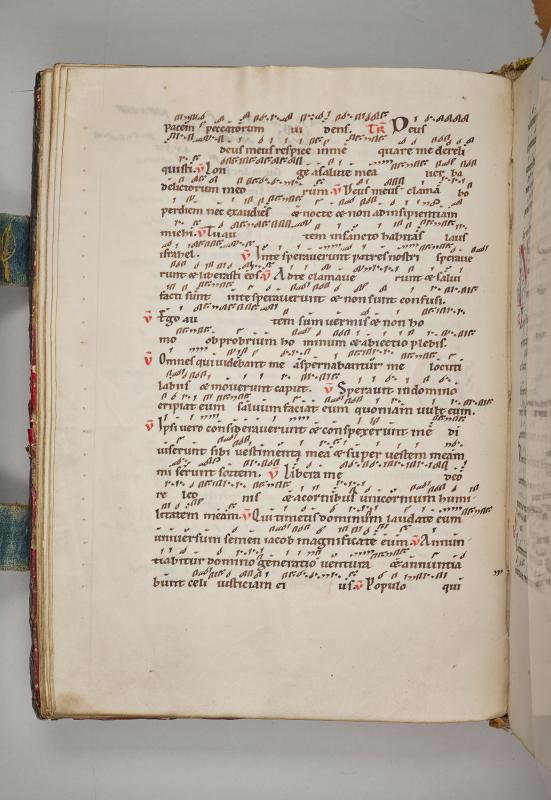 pacem peccatorum ui dens. TR Deus
deus meus respice inme quare me dereli
quisti. V Lon ge asalute mea uer ba
delictorum meo rum. V Deus meus clama bo
perdiem nec exaudies & nocte & non adinsipientiam
michi. V Tu au tem insancto habitas laus
israhel. V Inte sperauerunt patres nostri speraue
runt & liberasti eos. V Adte clamaue runt & salui
facti sunt inte sperauerunt & non sunt confusi.
V Ego au tem sum uermis & non ho
mo obprobrium ho minum & abiectio plebis.
V Omnes qui uidebant me aspernabantur me locuti
labiis & mouerunt caput. V Sperauit indomino
eripiat eum saluum faciat eum quoniam uult eum.
V Ipsi uero considerauerunt & conspexerunt me di
uiserunt sibi uestimenta mea & super uestem meam
miserunt sortem. V Libera me deo
re leo nis & acornibus unicornium humi
litatem meam. V Qui timetis dominum laudate eum
uniuersum semen iacob magnificate eum. V Annun
tiabitur domino generatio uentura & annuntia
bunt celi iusticiam ei us. V Populo qui